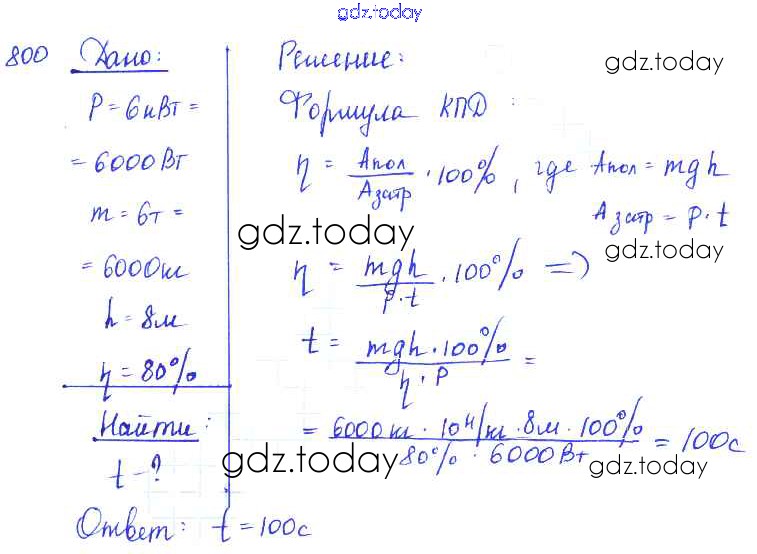 gdz.today
800 Дано:
P = 6кВт =
= 6000Вт
m = 6т =
= 6000кг
h = 8м
η = 80%
Найти:
t - ?
Решение:
gdz.today
Формула КПД:
η = Aпол / Aзатр · 100%, где Aпол = mgh
Aзатр = P · t
gdz.today
gdz.today
η = mgh / P · t · 100% =>
t = mgh · 100% / η · P =
= 6000кг · 10Н/кг · 8м · 100% / 80% · 6000Вт = 100с
gdz.today
gdz.today
Ответ: t = 100с